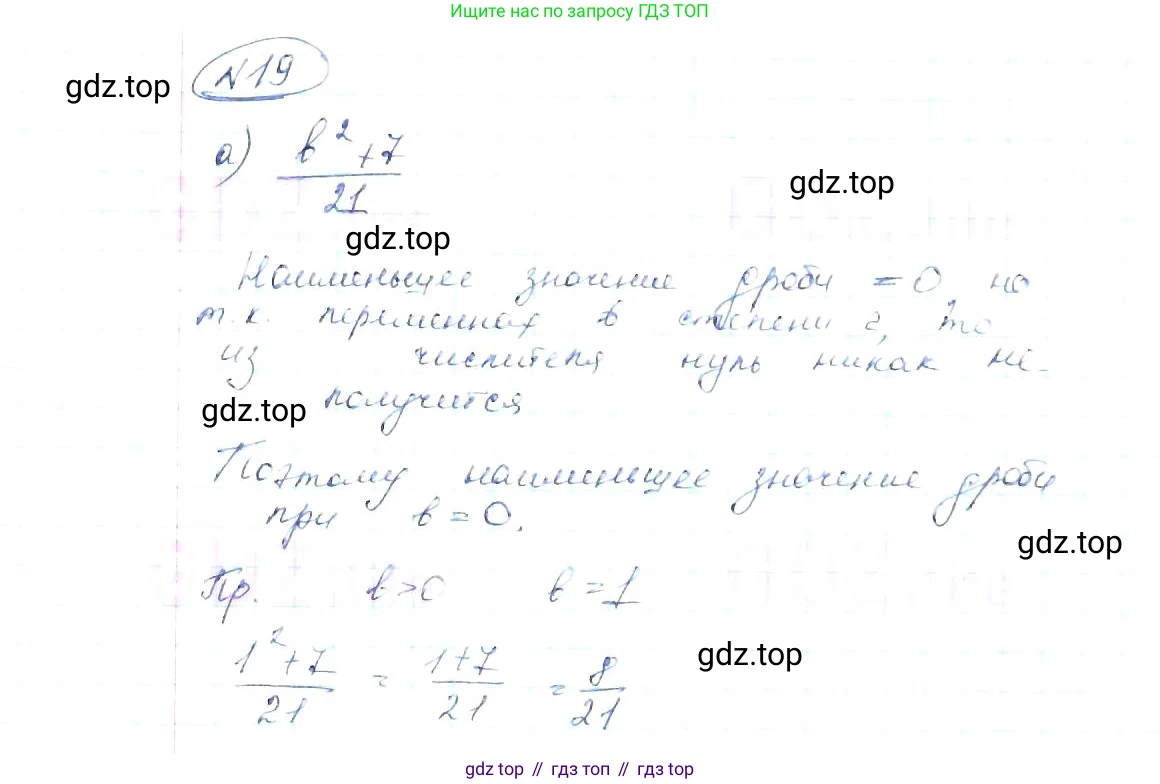 Ищите нас по запросу ГДЗ ТОП
N19
gdz.top
а) (b² + 7)/21
gdz.top
gdz.top
Наименьшее значение дроби = 0, но
т.к. переменная b в степени 2, то
из числителя нуль никак не
получится
gdz.top
Поэтому наименьшее значение дроби
при b = 0.
gdz.top
Пр. b > 0 b = 1
(1² + 7)/21 = (1 + 7)/21 = 8/21
gdz.top
gdz top // гдз топ // гдз top